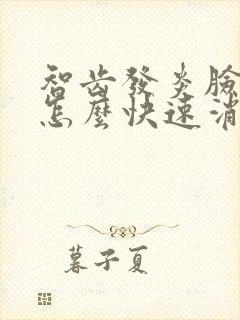 智齿發炎臉
怎麼快速消
暮子夏